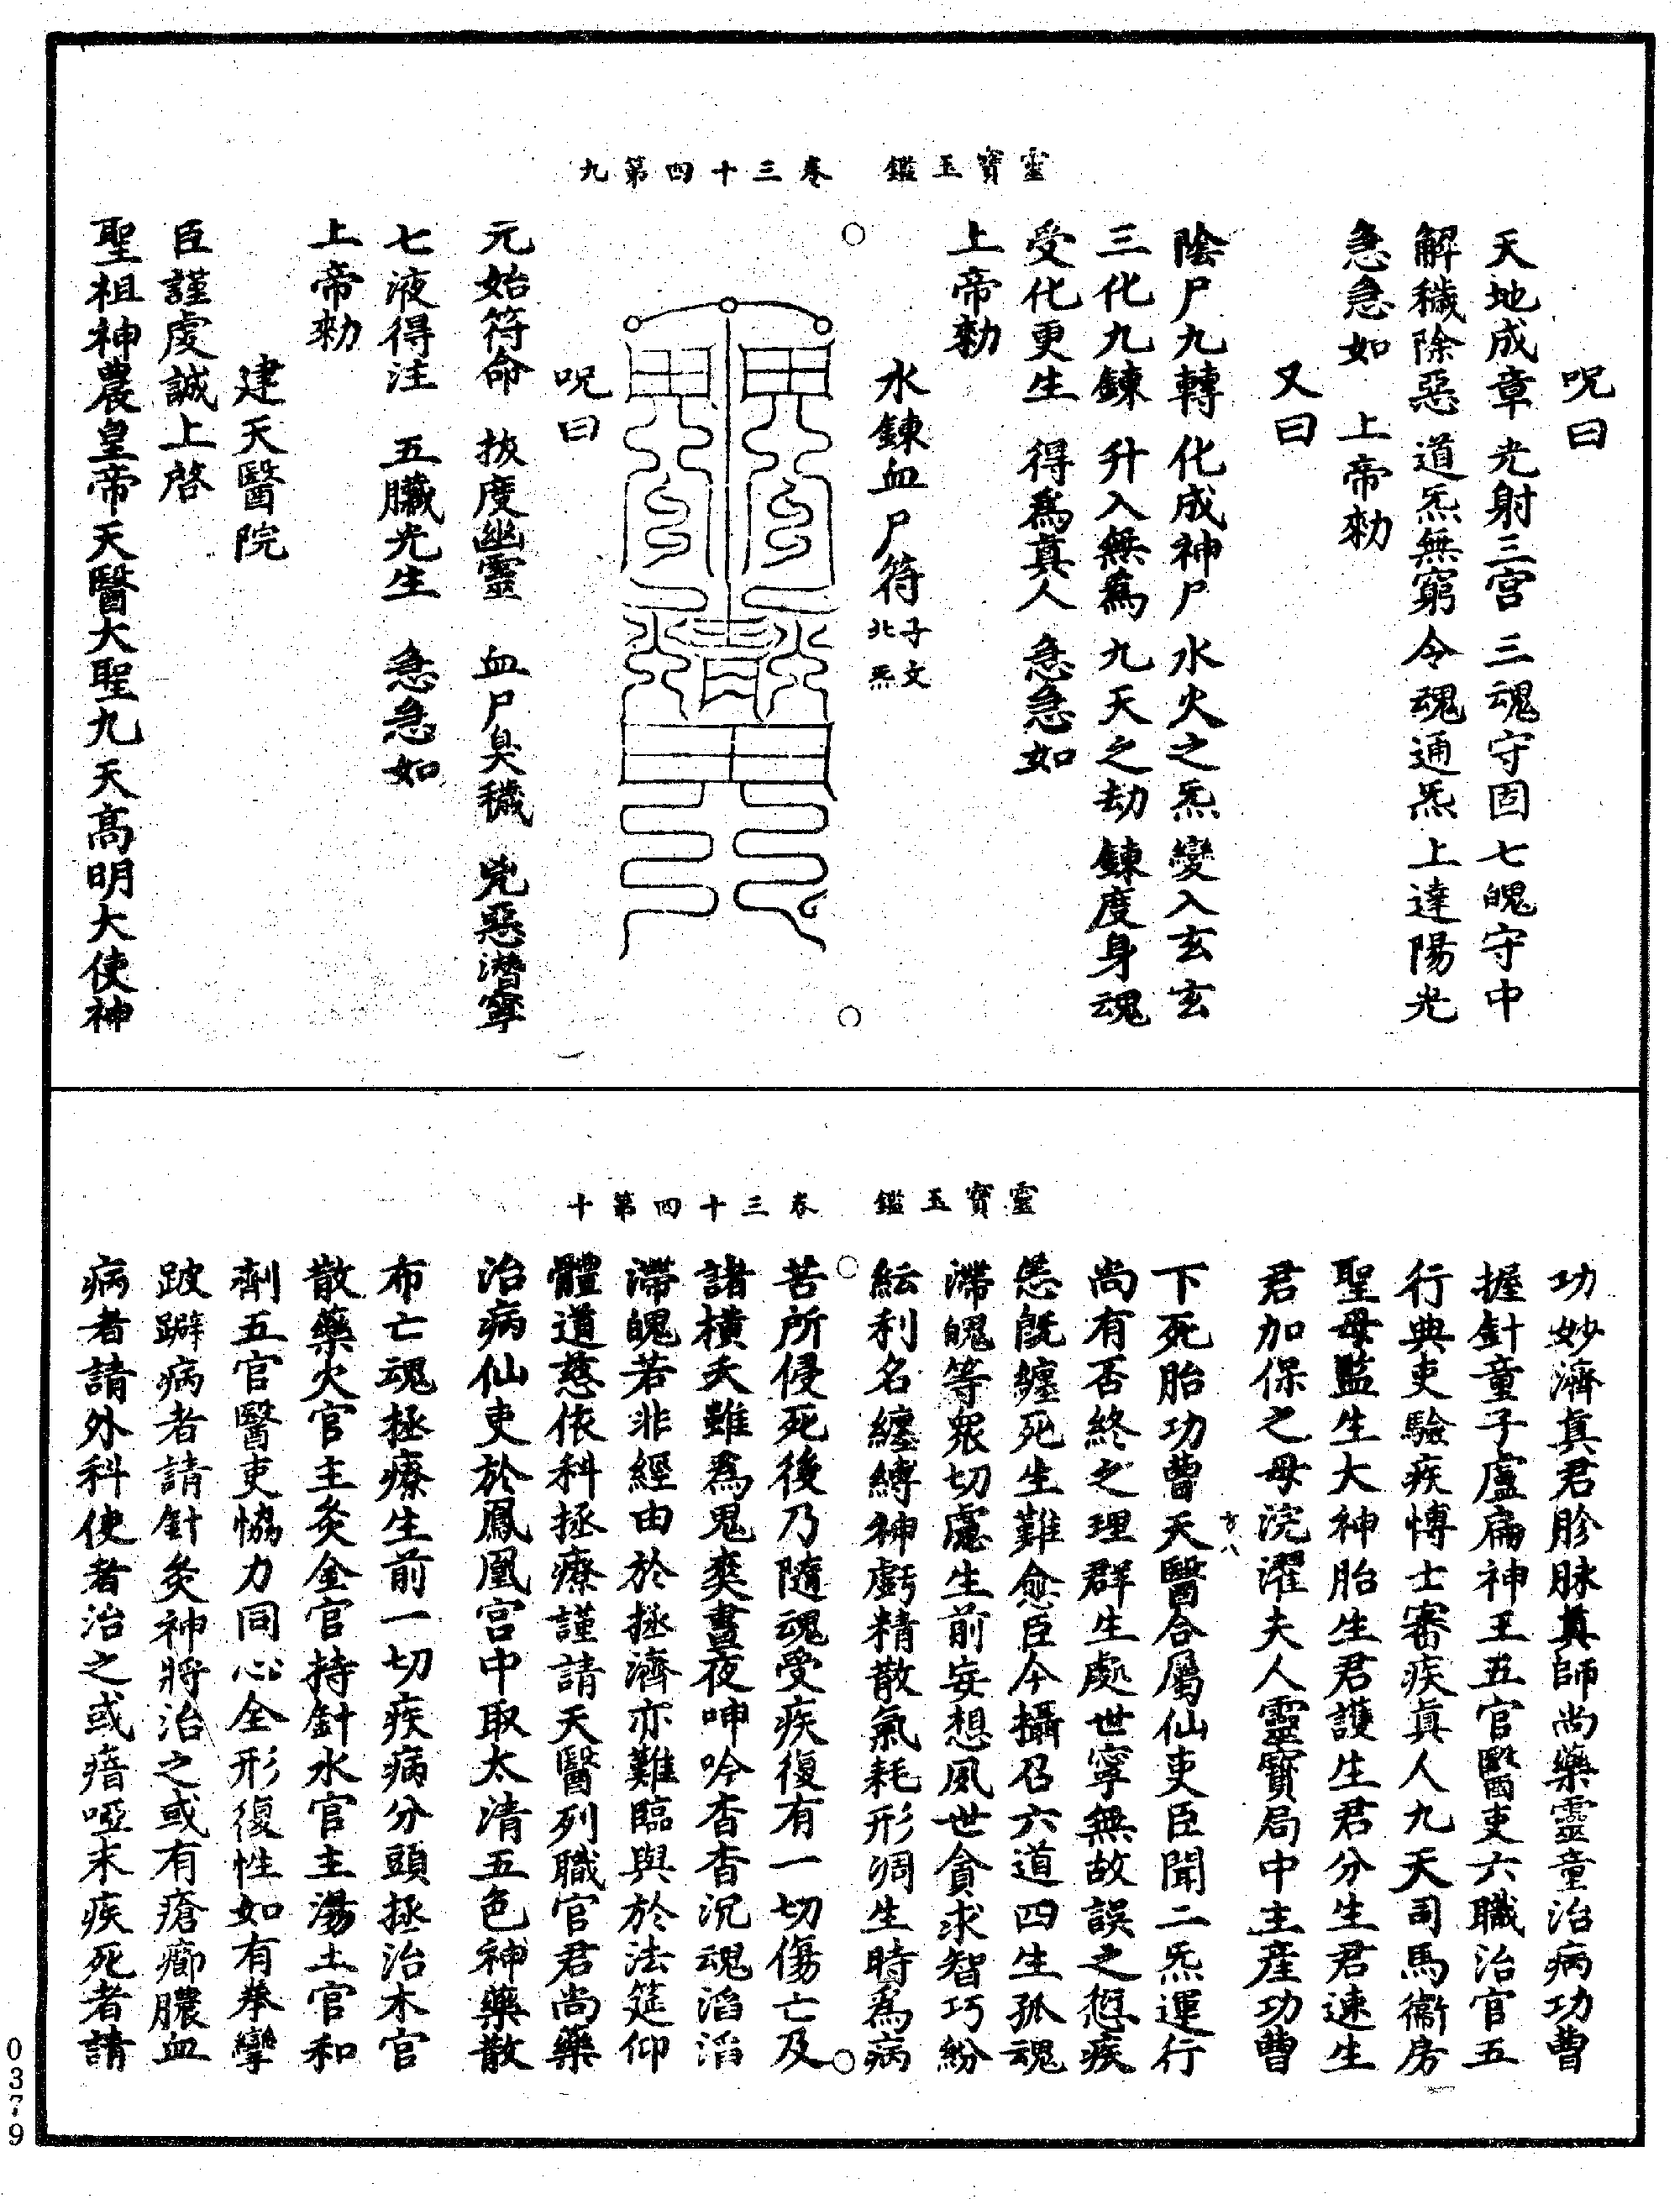 靈寶玉鑑　卷三十四第九
呪曰
天地成章　光射三宮　三魂守固　七魄守中
解穢除惡　道炁無窮　令魂通炁　上達陽光
急急如　上帝勑
又曰
陰尸九轉　化成神尸　水火之炁　變入玄玄
三化九鍊　升入無爲　九天之劫　鍊度身魂
受化更生　得爲真人　急急如
上帝勑
水鍊血尸符子文北炁
呪曰
元始符命　拔度幽靈　血尸臭穢　兇惡潛寧
七液得注　五臟光生　急急如
上帝勑
建天醫院
臣謹虔誠上啓
聖祖神農皇帝天醫大聖九天高明大使神
靈寶玉鑑　卷三十四第十
功妙濟真君胗脉真師尚藥靈童治病功曹
握針童子盧扁神王五官醫吏六職治官五
行典吏驗疾愽士審疾真人九天司馬衞房
聖母監生大神胎生君護生君分生君速生
君加保之母浣濯夫人靈寶局中主産功曹
下死胎功曹天醫合屬仙吏臣聞二炁運行
尚有否終之理群生處世寧無故誤之愆疾
恙旣纏死生難愈臣今攝召六道四生孤魂
滯魄等衆切慮生前妄想夙世貪求智巧紛
紜利名纏縛神虧精散氣耗形凋生時爲病
苦所侵死後乃隨魂受疾復有一切傷亡及
諸橫夭雖爲鬼爽晝夜呻吟杳杳沉魂滔滔
滯魄若非經由於拯濟亦難臨與於法筵仰
體道慈依科拯療謹請天醫列職官君尚藥
治病仙吏於鳳凰宫中取太清五色神藥散
布亡魂拯療生前一切疾病分頭拯治木官
散藥火官主灸金官持針水官主湯土官和
劑五官醫吏恊力同心全形復性如有拳攣
跛躃病者請針灸神將治之或有瘡癤膿血
病者請外科使者治之或瘖啞末疾死者請
0379